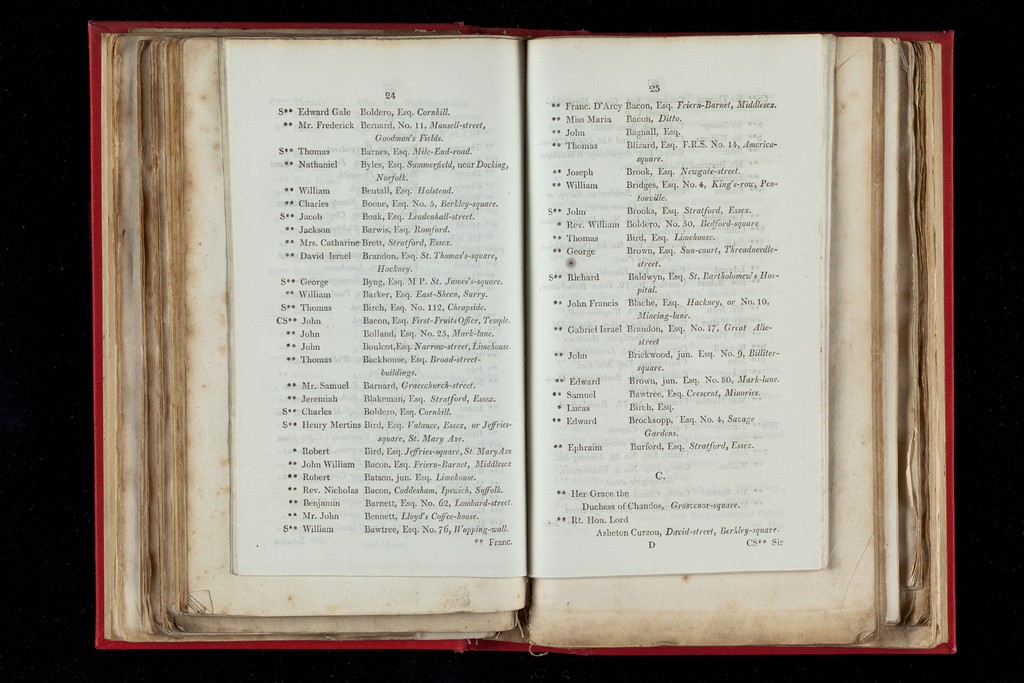 24
S** Edward Gale Boldero, Esq. Cornhill.
** Mr. Frederick Bernard, No. 11, Mansell-street,
Goodman's Fields.
S** Thomas Barnes, Esq. Mile-End-road.
** Nathaniel Byles, Esq. Summerfield, near Docking,
Norfolk.
** William Bentall, Esq. Halstead.
** Charles Boone, Esq. No. 5, Berkley-square.
S** Jacob Boak, Esq. Leadenhall-street.
** Jackson Barwis, Esq. Romford.
** Mrs. Catharine Brett, Stratford, Essex.
** David Israel Brandon, Esq. St. Thomas's-square,
Hackney.
S** George Byng, Esq. M P. St. James's-square.
** William Barker, Esq. East-Sheen, Surry.
S** Thomas Birch, Esq. No. 112, Cheapside.
CS** John Bacon, Esq. First-Fruits Office, Temple.
** John Bolland, Esq. No. 25, Mark-lane.
** John Boulcot, Esq. Narrow-street, Limehouse.
** Thomas Backhouse, Esq. Broad-street-
buildings.
** Mr. Samuel Barnard, Gracechurch-street.
** Jeremiah Blakeman, Esq. Stratford, Essex.
S** Charles Boldero, Esq. Cornhill.
S** Henry Mertins Bird, Esq. Valance, Essex, or Jeffries-
square, St. Mary Axe.
* Robert Bird, Esq. Jeffries-square, St. Mary Axe
** John William Bacon, Esq. Friern-Barnet, Middlesex
** Robert Batson, jun. Esq. Limehouse.
** Rev. Nicholas Bacon, Coddenham, Ipswich, Suffolk.
** Benjamin Barnett, Esq. No. 62, Lombard-street.
** Mr. John Bennett, Lloyd's Coffee-house.
S** William Bawtree, Esq. No. 76, Wapping-wall.
** Franc.
25
** Franc. D'Arcy Bacon, Esq. Friern-Barnet, Middlesex.
** Miss Maria Bacon, Ditto.
** John Bagnall, Esq.
** Thomas Blizard, Esq. F.R.S. No. 14, America-
square.
** Joseph Brook, Esq. Newgate-street.
** William Bridges, Esq. No. 4, King's-row, Pen-
tonville.
S** John Brooks, Esq. Stratford, Essex.
* Rev. William Boldero, No. 50, Bedford-square
** Thomas Bird, Esq. Limehouse.
** George Brown, Esq. Sun-court, Threadneedle-
street.
S** Richard Baldwyn, Esq. St. Bartholomew's Hos-
pital.
** John Francis Blache, Esq. Hackney, or No. 10,
Mincing-lane.
** Gabriel Israel Brandon, Esq. No. 17, Great Alie-
street
** John Brickwood, jun. Esq. No. 9, Billiter-
square.
** Edward Brown, jun. Esq. No. 80, Mark-lane.
** Samuel Bawtree, Esq. Crescent, Minories.
* Lucas Birch, Esq.
** Edward Brocksopp, Esq. No. 4, Savage
Gardens.
** Ephraim Burford, Esq. Stratford, Essex.
C.
** Her Grace the
Duchess of Chandos, Grosvenor-square.
** Rt. Hon. Lord
Asheton Curzon, David-street, Berkley-square.
D CS** Sir